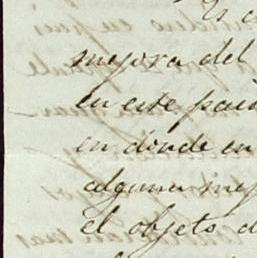 Es
mejora del
en este pais
en donde en
alguna mej
el objeto d